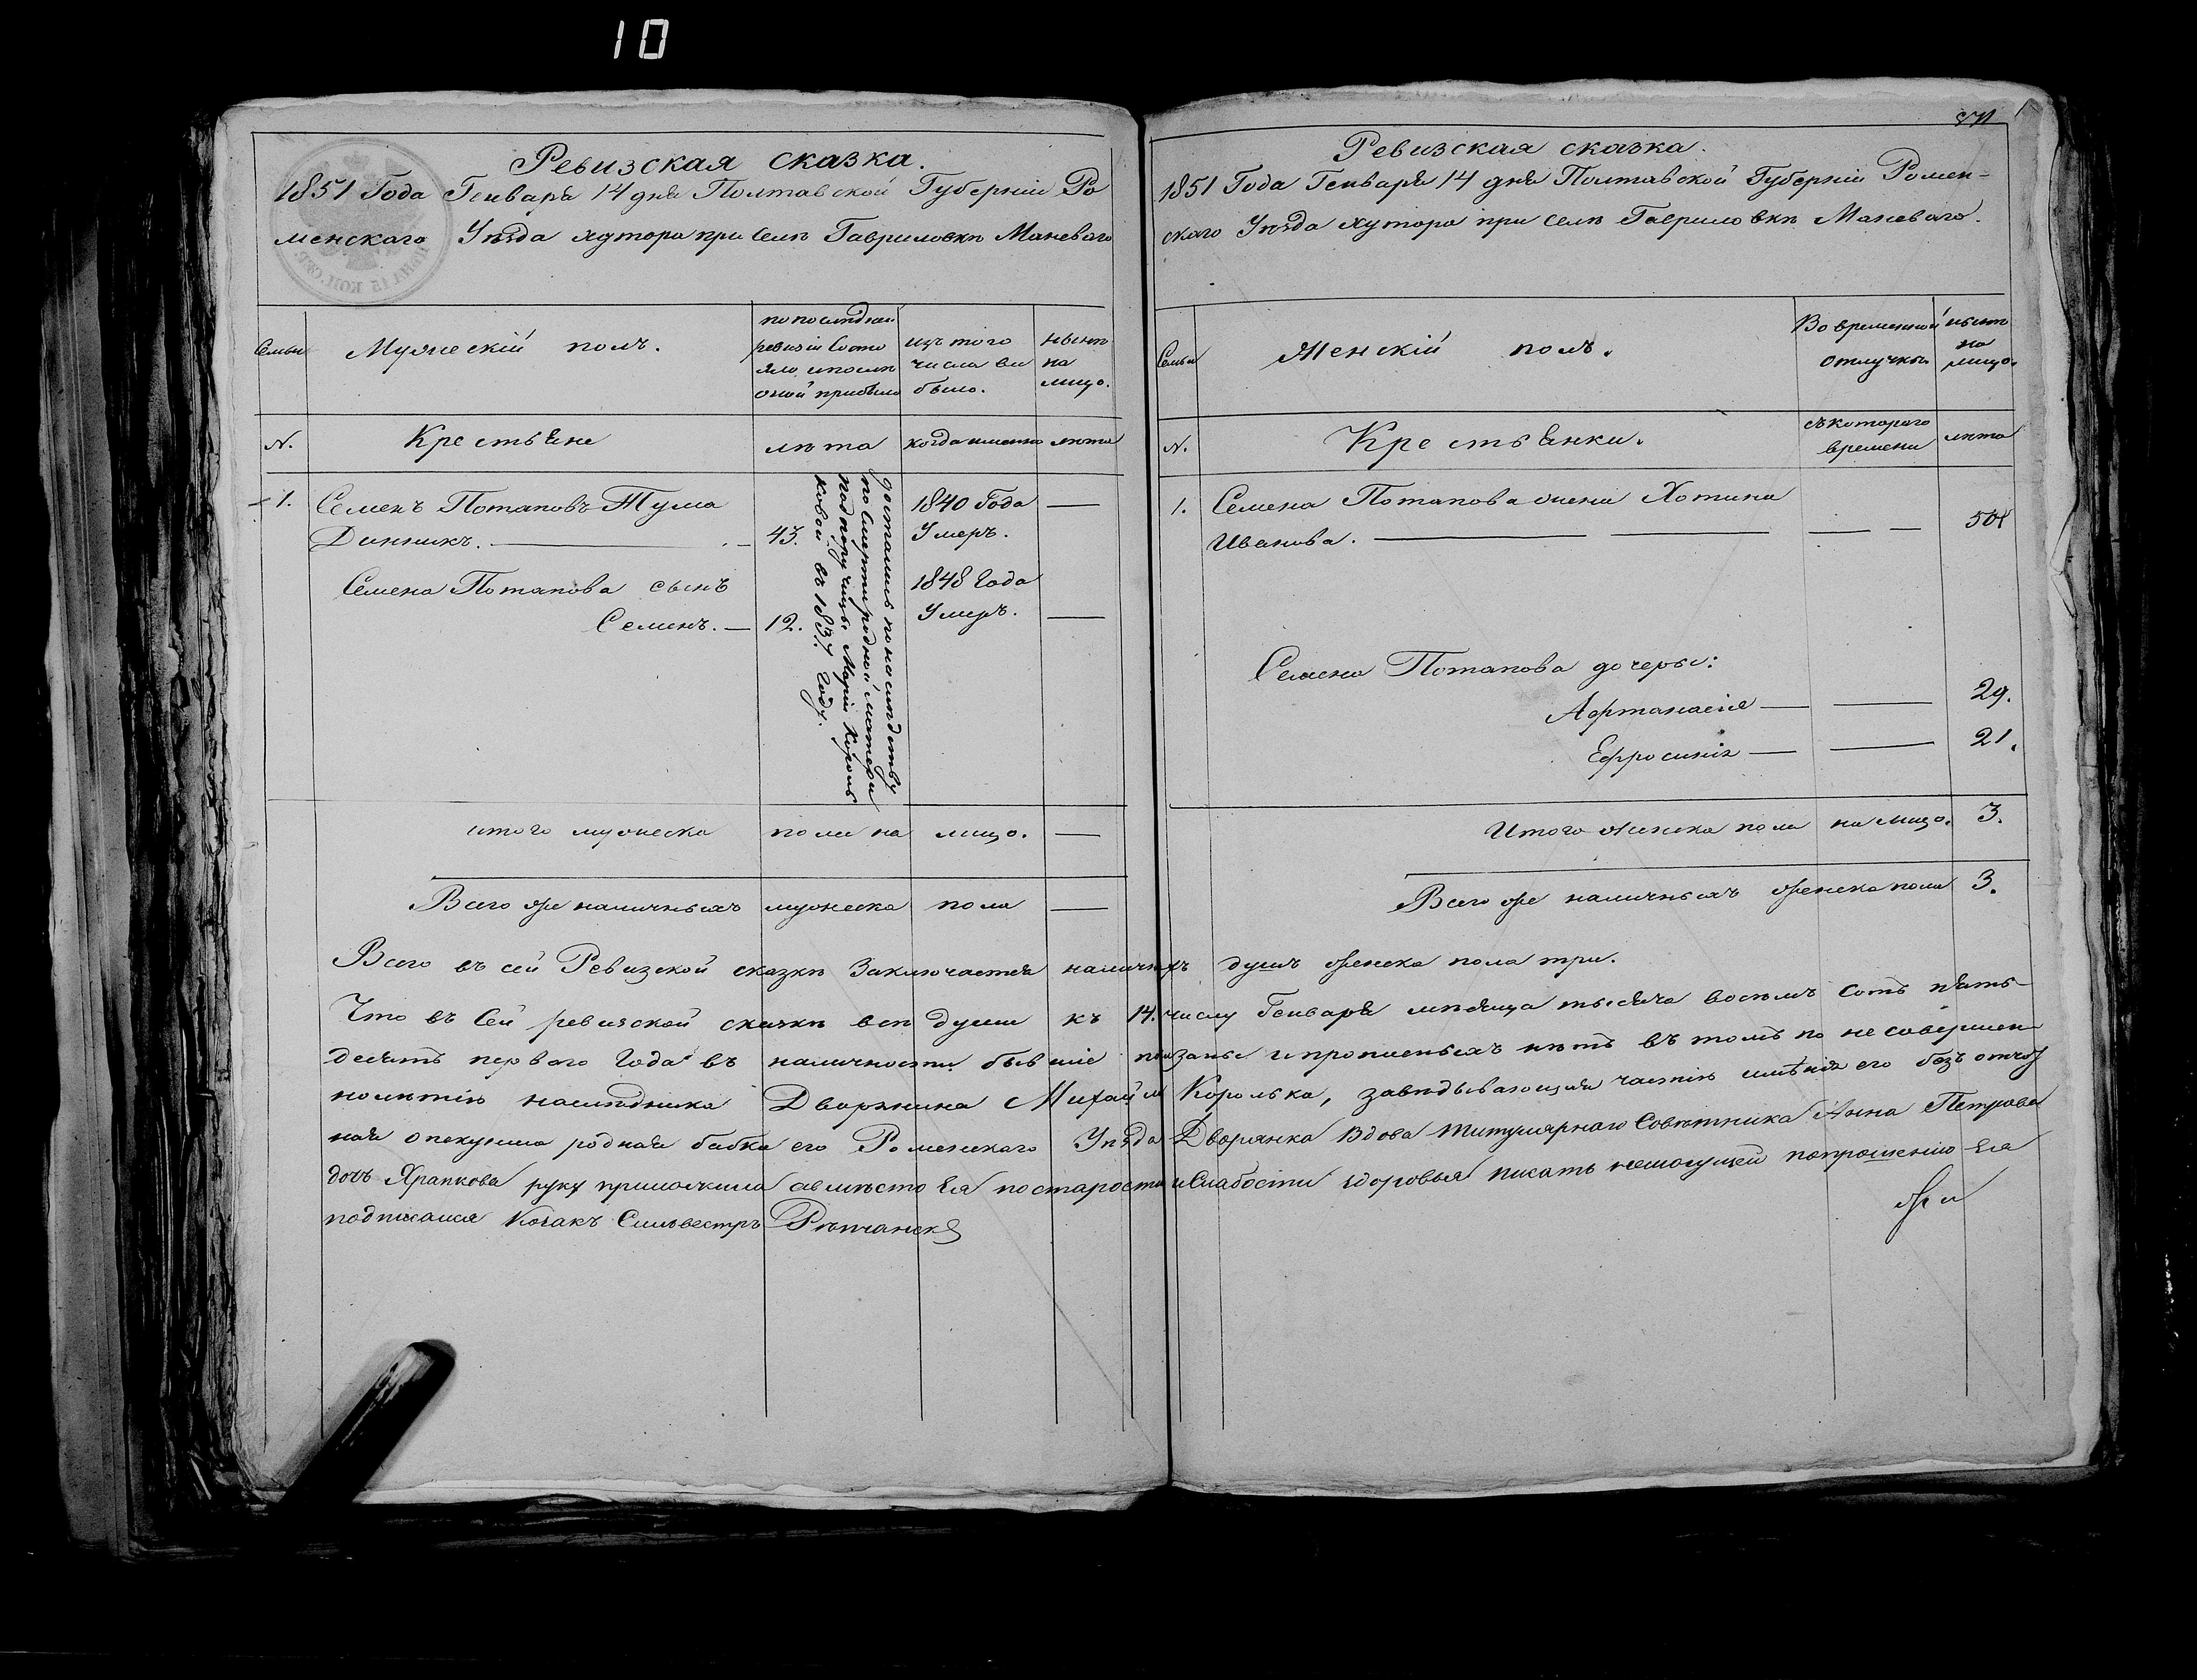 10
Ревизская сказка.
1851 Года Генваря 14 дня Полтавской Губерніи Ро
менскаго Уѣзда хутора при селѣ Гавриловкѣ Маневаго
Семьи
Мужескій полъ.
по послѣдней
ревизіи состо
яло и послѣ
оной прибыло
изъ того
числа вы
было.
нынѣ
на
лицо.
N.
Крестьяне
лѣта
когда именно
лѣта
1.
Семенъ Потаповъ Тума
Данникъ.
43.
1840 Года
Умеръ.
Семена Потапова сынъ
Семенъ.
12.
1848 Года
Умеръ.
достались по наслѣдству
по смерти родной матери
подпоручицы Маріи Король
ковой въ 1837 году.
итого мужеска пола на лицо.
Всего же наличныхъ мужеска пола
471
Ревизская сказка.
1851 Года Генваря 14 дня Полтавской Губерніи Ромен-
скаго Уѣзда хутора при селѣ Гавриловкѣ Маневаго.
Семьи
Женскій полъ.
Во временной
отлучкѣ
нынѣ
на
лицо.
N.
Крестьянки.
съ котораго
времени
лѣта
1.
Семена Потапова жена Хотина
Иванова.
50
Семена Потапова дочери:
Афтанасія
29.
Ефросинія
21.
Итого женска пола на лицо. 3.
Всего же наличныхъ женска пола 3.
Всего въ сей Ревизской сказкѣ Заключается наличныхъ душъ женска пола три.
Что въ Сей ревизской сказкѣ всѣ души къ 14. числу Генваря мѣсяца тысяча восемь сотъ пять-
десять перваго Года въ наличности бывшіе показаны и прописныхъ нѣтъ въ томъ по не совершен
нолѣтію наслѣдника Дворянина Михайла Королька, завѣдывающая частію имѣнія его безъ отчот
ная опекунша родная бабка его Роменскаго Уѣзда Дворянка вдова титулярнаго Совѣтника Анна Петрова
дочь Храпкова руку приложила а вмѣсто Ея по старости и Слабости здоровья писать немогущей по прошенію Ея
подписался Козакъ Сильвестръ